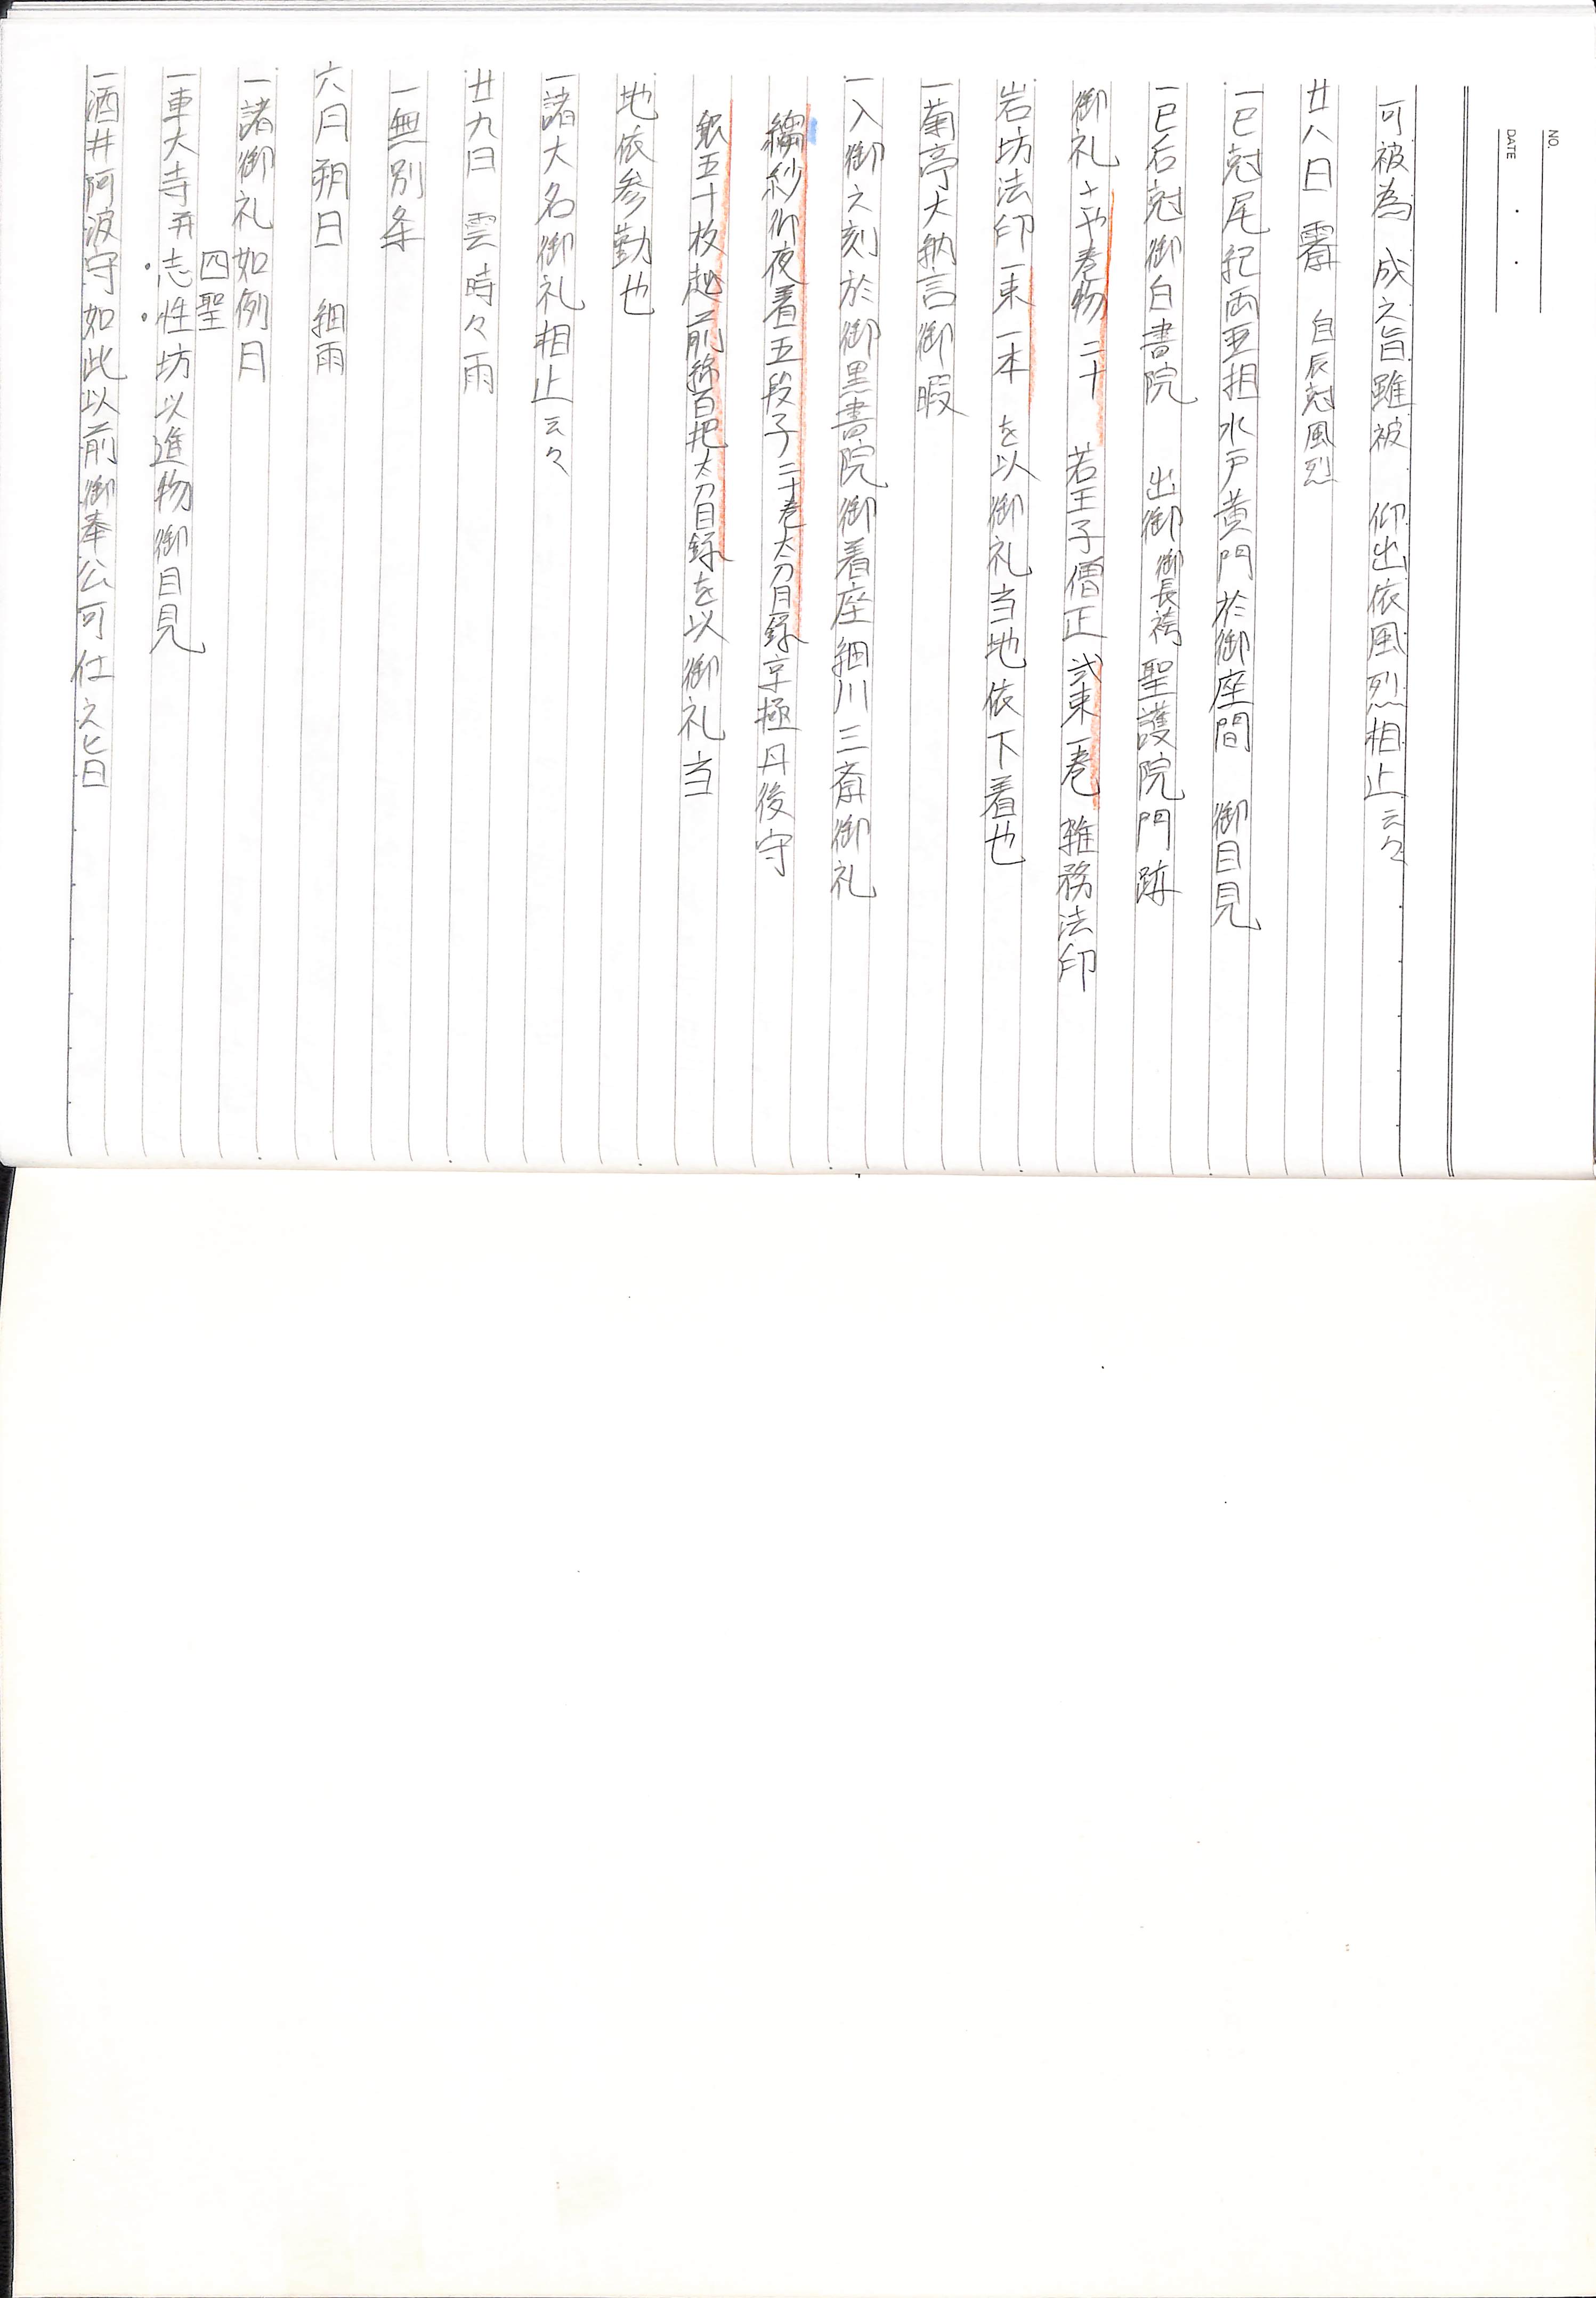 NO.
DATE ・ ・
可被為 成之旨雖被 仰出依風烈相止云々
廿八日 霽 自辰尅風烈
一巳尅尾紀両亜相水戸黄門於御座間 御目見
一巳后尅御白書院 出御御長袴聖護院門跡
御礼さや巻物二十 若王子僧正弐束一巻 雑務法印
岩坊法印一束一本を以御礼当地依下着也
一菊亭大納言御暇
一入御之刻於御黒書院御着座細川三斎御礼
繻紗御夜着五段子二十巻太刀目録京極丹後守
銀五十枚越前綿百把太刀目録を以御礼当
地依参勤也
一諸大名御礼相止云々
廿九日 雲時々雨
一無別条
六月朔日 細雨
一諸御礼如例月
四聖
一車大寺并志性坊以進物御目見
一酒井阿波守如此以前御奉公可仕之旨